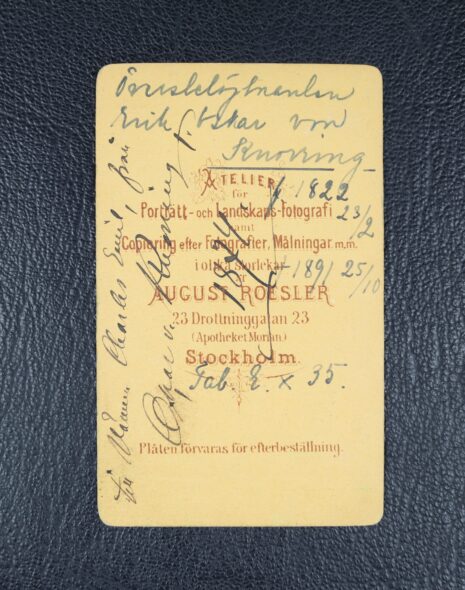 Öfverstelöjtnanten
Erik Oskar von
Knorring
ATELIER
för
Porträtt- och Landskaps-fotografi
samt
Copiering efter Fotografier, Målningar m.m.
i olika storlekar
AUGUST ROESLER
23 Drottninggatan 23
(Apotheket Morian)
Stockholm.
Plåten förvaras för efterbeställning.
f. 1822 23/2
† 1891 25/10
Tab. E. x 35.
Charles Emil, från
Oscar v. Knorring